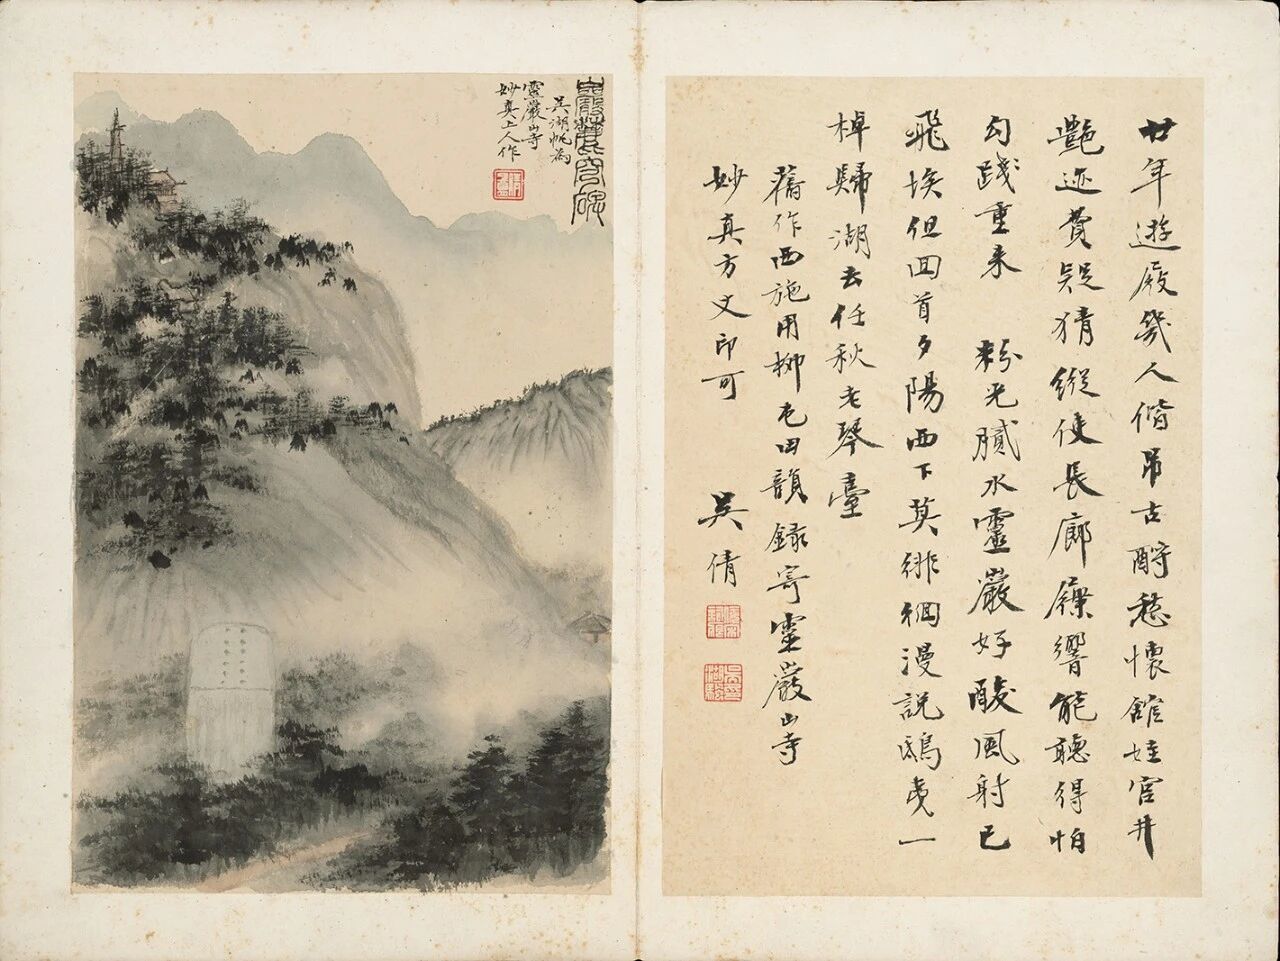 廿年遊屐幾人偕吊古酹愁懷館娃宫井
艷迹費疑猜縱使長廊屧響能聽得怕
勾踐重來 粉光膩水靈巖好酸風射已
飛埃但回首夕陽西下莫徘徊漫説鴟夷一
棹歸湖去任秋老琴臺
舊作西施用柳屯田韻録寄靈巖山寺
妙真方丈印可
吴倩
巖麓穹碑
吴湖帆為
靈巖山寺
妙真上人作